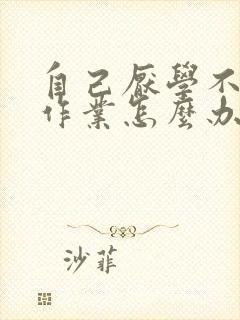 自己厭學不
作業怎麼办
沙菲